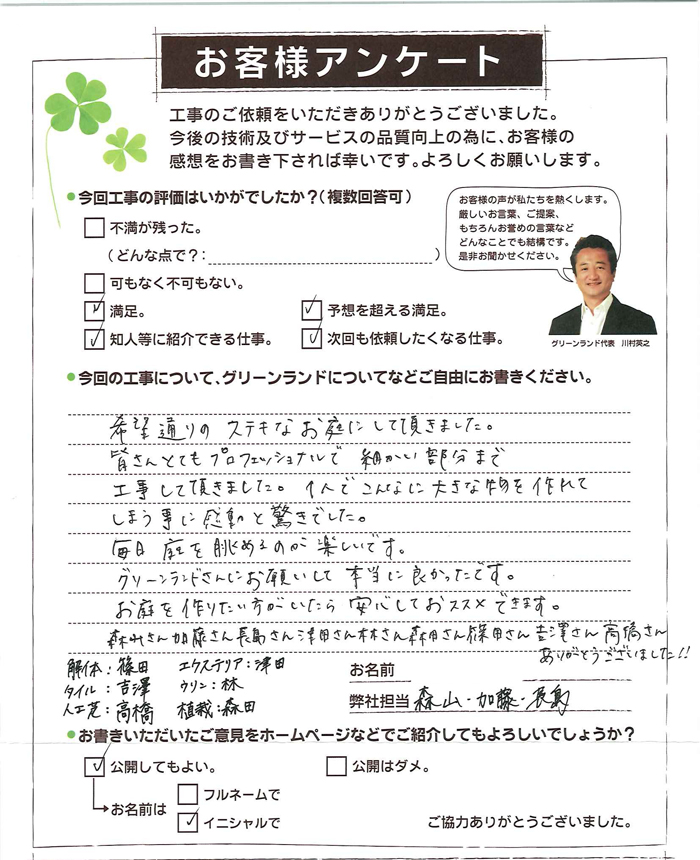 お客様アンケート
工事のご依頼をいただきありがとうございました。
今後の技術及びサービスの品質向上の為に、お客様の
感想をお書き下されば幸いです。よろしくお願いします。
今回工事の評価はいかがでしたか？（複数回答可）
不満が残った。
（どんな点で？：　）
可もなく不可もない。
満足。
予想を超える満足。
知人等に紹介できる仕事。
次回も依頼したくなる仕事。
お客様の声が私たちを熱くします。
厳しいお言葉、ご提案、
もちろんお誉めの言葉など
どんなことでも結構です。
是非お聞かせください。
グリーンランド代表　川村英之
今回の工事について、グリーンランドについてなどご自由にお書きください。
希望通りの ステキなお庭にして頂きました。
皆さんとてもプロフェッショナルで 細かい部分まで
工事して頂きました。1人でこんなに大きな物を作れて
しまう事に感動と驚きでした。
毎日 庭を眺めるのが楽しいです。
グリーンランドさんにお願いして 本当に良かったです。
お庭を作りたい方がいたら 安心しておススメできます。
森山さん 加藤さん 長島さん 津田さん 林さん 森田さん 篠田さん 吉澤さん 高橋さん
ありがとうございました!!
解体：篠田　エクステリア：津田
タイル：吉澤　ウリン：林
人工芝：高橋　植栽：森田
お名前
弊社担当 森山・加藤・長島
お書きいただいたご意見をホームページなどでご紹介してもよろしいでしょうか？
公開してもよい。
公開はダメ。
お名前は
フルネームで
イニシャルで
ご協力ありがとうございました。